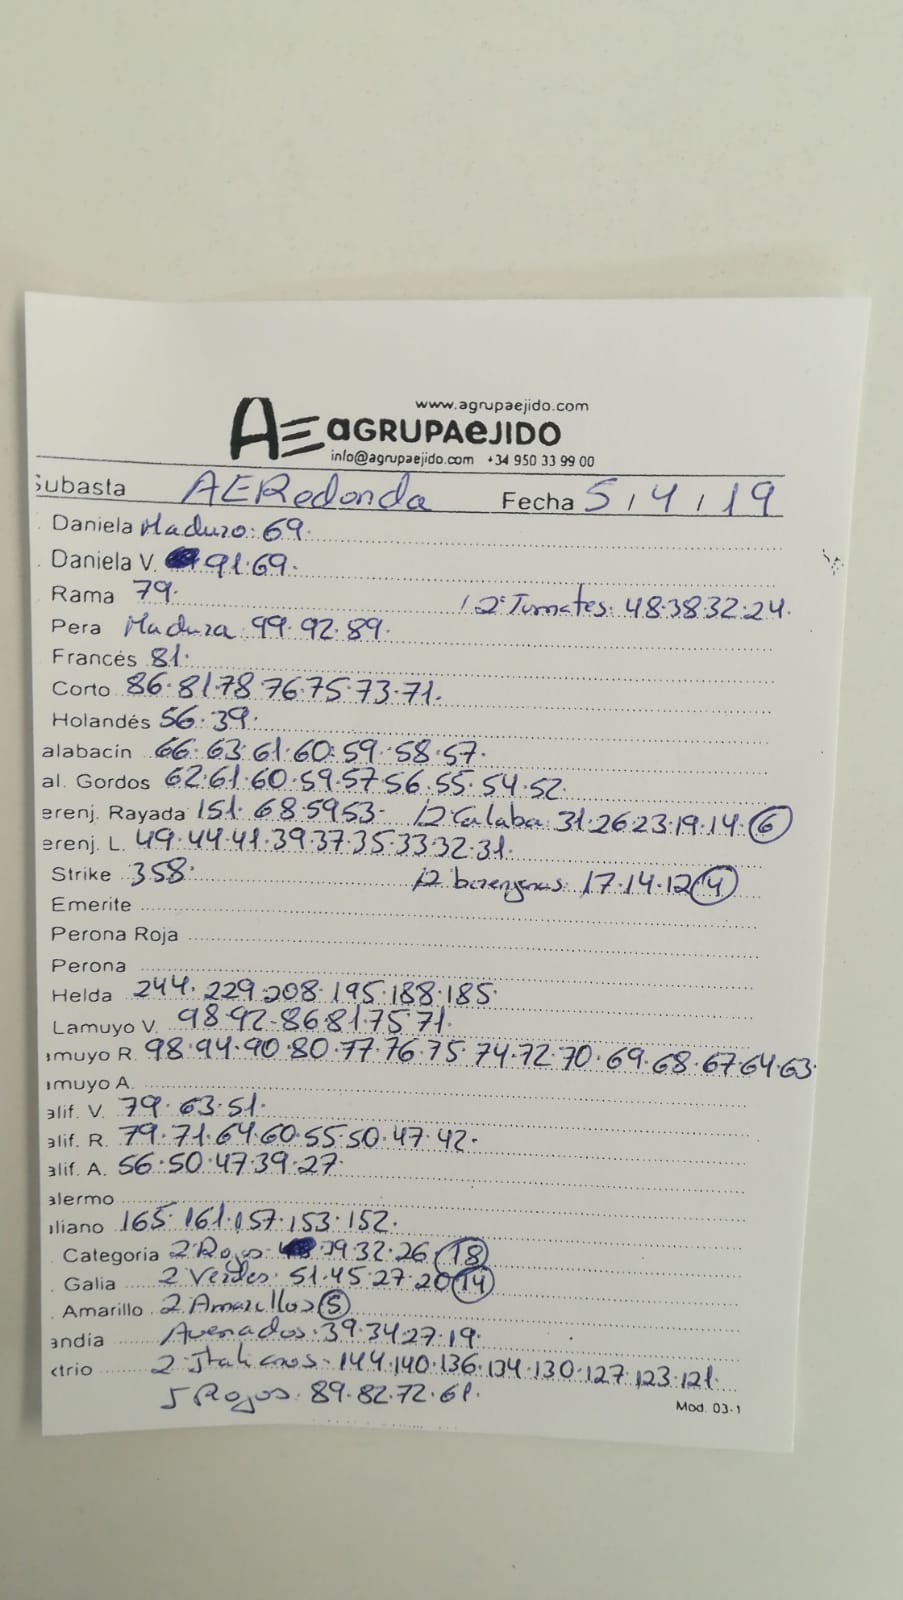 www.agrupaejido.com
AE aGRUPAeJIDO
info@agrupaejido.com +34 950 33 99 00
Subasta AERedonda Fecha 5/4/19
Daniela Maduro: 69.
Daniela V. 91.69.
Rama 79. 2 Tumates: 48.38.32.24.
Pera Madura 99.92.89.
Francés 81.
Corto 86.81.78.76.75.73.71.
Holandés 56.39.
alabacín 66.63.61.60.59.58.57.
al. Gordos 62.61.60.59.57.56.55.54.52.
erenj. Rayada 151.68.59.53. 2 Calaba: 31.26.23.19.14.6
erenj. L. 49.44.41.39.37.35.33.32.31.
Strike 358. 2 berengenas: 17.14.12.4
Emerite
Perona Roja
Perona
Helda 244.229.208.195.188.185.
Lamuyo V. 98.92.86.81.75.71.
muyo R. 98.94.90.80.77.76.75.74.72.70.69.68.67.64.63.
muyo A.
alif. V. 79.63.51.
alif. R. 79.71.64.60.55.50.47.42.
alif. A. 56.50.47.39.27.
alermo
aliano 165.161.157.153.152.
Categoria 2 Rojos: 39.32.26.18
Galia 2 Verdes: 51.45.27.20.14
Amarillo 2 Amarillos 5
andia Asenados: 39.34.27.19.
ctrio 2 Italianos: 144.140.136.134.130.127.123.121.
5 Rojos: 89.82.72.61.
Mod. 03-1